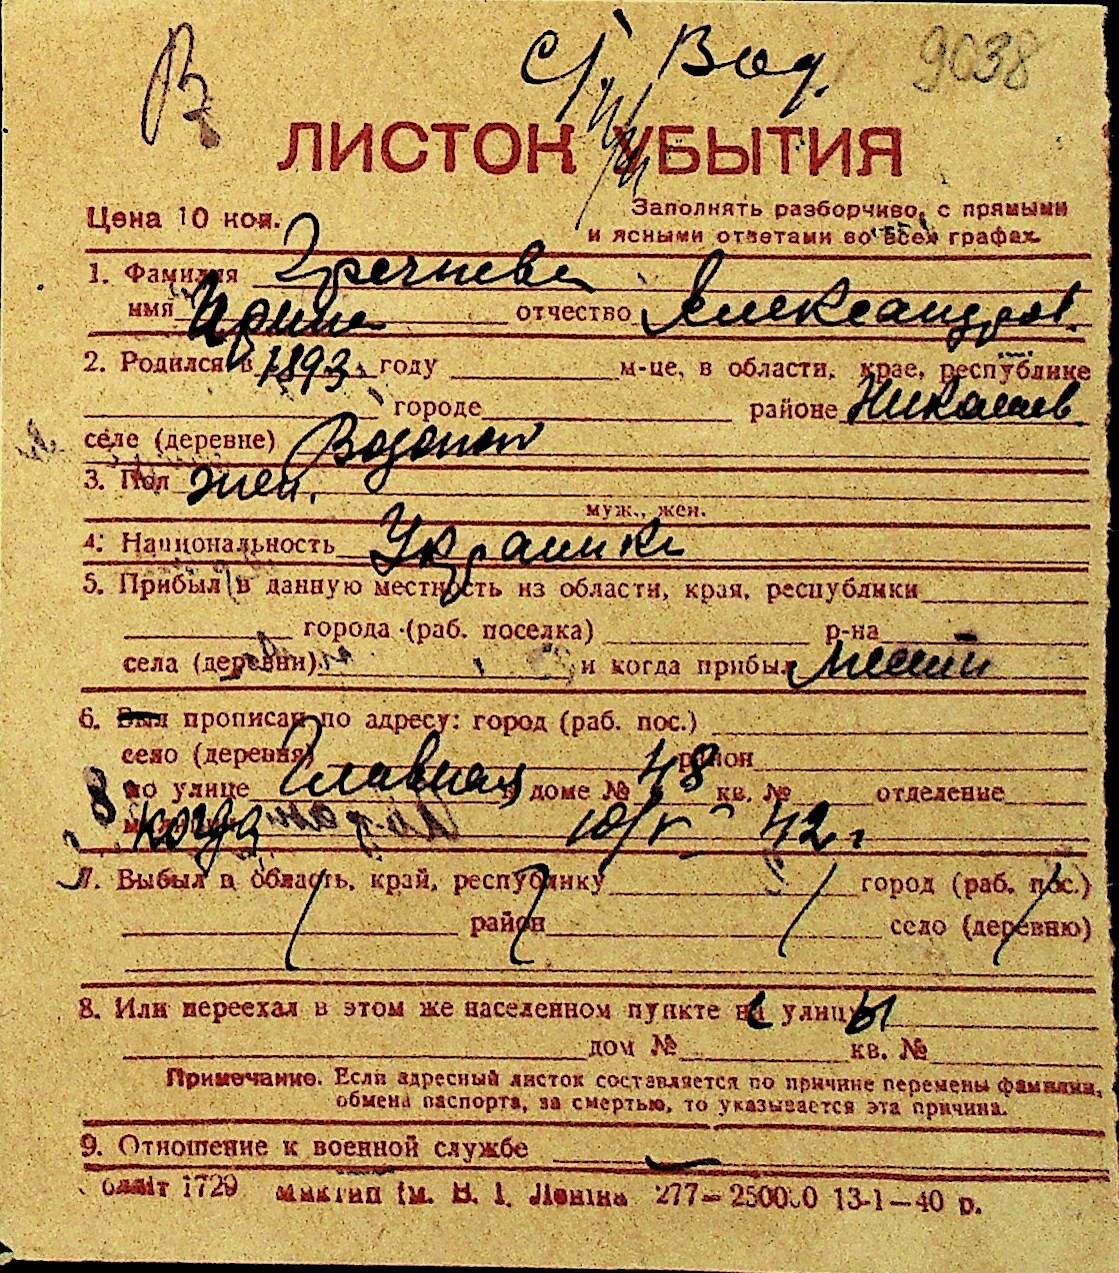 В
с/ Вод. 9038
ЛИСТОК УБЫТИЯ
Цена 10 коп. Заполнять разборчиво, с прямыми
и ясными ответами во всех графах.
1. Фамилия Гречнева
имя Ирина отчество Александров.
2. Родился в 1893 году м-це, в области, крае, республике
городе районе Николаев.
селе (деревне) Водопой
3. Пол жен.
муж., жен.
4. Национальность Украинка
5. Прибыл в данную местность из области, края, республики
города (раб. поселка) р-на
села (деревни) и когда прибыл
6. Был прописан по адресу: город (раб. пос.)
село (деревня) район
по улице Главная в доме № 48 кв. № отделение
милиции когда 10/V 42 г
7. Выбыл в область, край, республику город (раб. пос.)
район село (деревню)
8. Или переехал в этом же населенном пункте с улицы
дом № кв. №
Примечание. Если адресный листок составляется по причине перемены фамилии,
обмена паспорта, за смертью, то указывается эта причина.
9. Отношение к военной службе —
облліт 1729 ім. В. І. Леніна 277—250000 13-1—40 р.